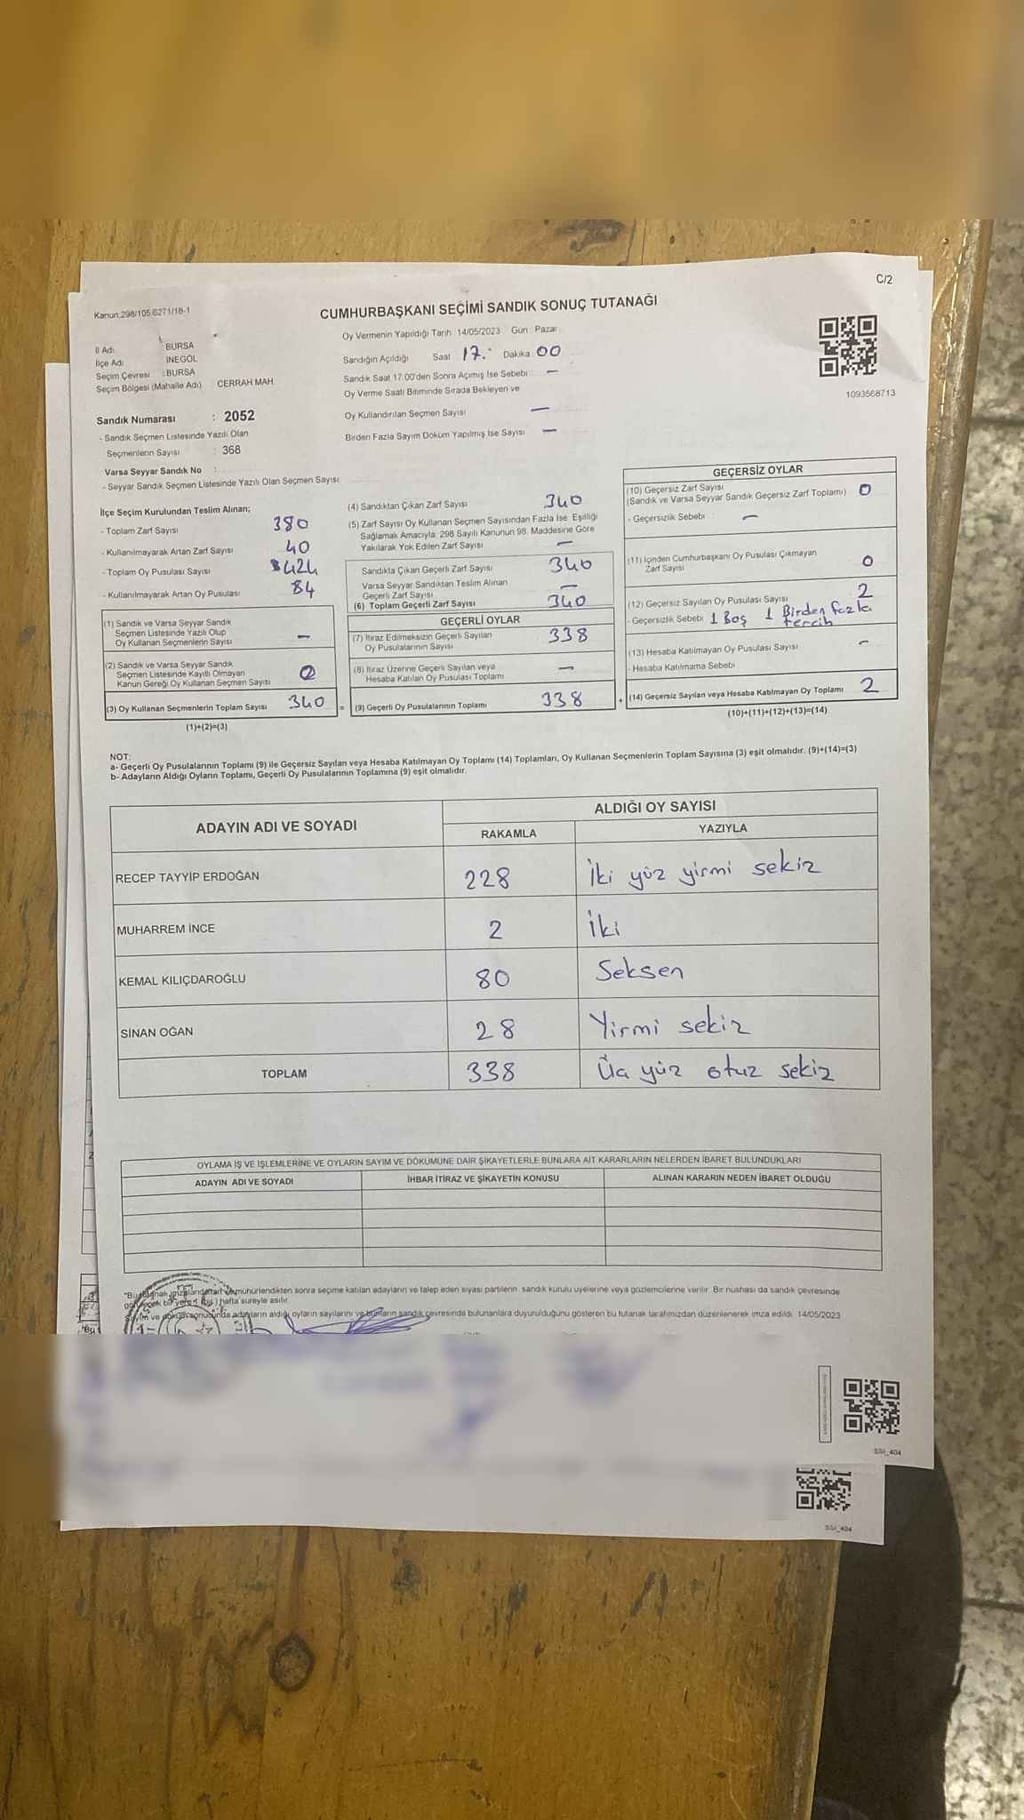 C/2
Kanun:298/105 6271/18-1
CUMHURBAŞKANI SEÇİMİ SANDIK SONUÇ TUTANAĞI
Oy Vermenin Yapıldığı Tarih 14/05/2023 Gün: Pazar
İl Adı : BURSA
İlçe Adı : İNEGÖL
Seçim Çevresi : BURSA
Seçim Bölgesi (Mahalle Adı) CERRAH MAH.
Sandığın Açıldığı Saat 17. Dakika 00
Sandık Saat 17:00'den Sonra Açımış İse Sebebi: —
Oy Verme Saati Bitiminde Sırada Bekleyen ve
Oy Kullandırılan Seçmen Sayısı —
Birden Fazla Sayım Döküm Yapılmış İse Sayısı —
1093568713
Sandık Numarası : 2052
- Sandık Seçmen Listesinde Yazılı Olan
Seçmenlerin Sayısı : 368
Varsa Seyyar Sandık No :
- Seyyar Sandık Seçmen Listesinde Yazılı Olan Seçmen Sayısı
İlçe Seçim Kurulundan Teslim Alınan;
- Toplam Zarf Sayısı 380
- Kullanılmayarak Artan Zarf Sayısı 40
- Toplam Oy Pusulası Sayısı 424
- Kullanılmayarak Artan Oy Pusulası 84
(1) Sandık ve Varsa Seyyar Sandık
Seçmen Listesinde Yazılı Olup
Oy Kullanan Seçmenlerin Sayısı —
(2) Sandık ve Varsa Seyyar Sandık
Seçmen Listesinde Kayıtlı Olmayan
Kanun Gereği Oy Kullanan Seçmen Sayısı
(3) Oy Kullanan Seçmenlerin Toplam Sayısı 340
(1)+(2)=(3)
(4) Sandıktan Çıkan Zarf Sayısı 340
(5) Zarf Sayısı Oy Kullanan Seçmen Sayısından Fazla İse, Eşitliği
Sağlamak Amacıyla, 298 Sayılı Kanunun 98. Maddesine Göre
Yakılarak Yok Edilen Zarf Sayısı —
Sandıkta Çıkan Geçerli Zarf Sayısı 340
Varsa Seyyar Sandıktan Teslim Alınan
Geçerli Zarf Sayısı —
(6) Toplam Geçerli Zarf Sayısı 340
GEÇERLİ OYLAR
(7) İtiraz Edilmeksizin Geçerli Sayılan
Oy Pusulalarının Sayısı 338
(8) İtiraz Üzerine Geçerli Sayılan veya
Hesaba Katılan Oy Pusulası Toplamı —
= (9) Geçerli Oy Pusulalarının Toplamı 338
GEÇERSİZ OYLAR
(10) Geçersiz Zarf Sayısı
(Sandık ve Varsa Seyyar Sandık Geçersiz Zarf Toplamı) 0
- Geçersizlik Sebebi : —
(11) İçinden Cumhurbaşkanı Oy Pusulası Çıkmayan
Zarf Sayısı 0
(12) Geçersiz Sayılan Oy Pusulası Sayısı 2
- Geçersizlik Sebebi 1 Boş 1 Birden fazla
tercih
(13) Hesaba Katılmayan Oy Pusulası Sayısı —
- Hesaba Katılmama Sebebi
+ (14) Geçersiz Sayılan veya Hesaba Katılmayan Oy Toplamı 2
(10)+(11)+(12)+(13)=(14)
NOT:
a- Geçerli Oy Pusulalarının Toplamı (9) ile Geçersiz Sayılan veya Hesaba Katılmayan Oy Toplamı (14) Toplamları, Oy Kullanan Seçmenlerin Toplam Sayısına (3) eşit olmalıdır. (9)+(14)=(3)
b- Adayların Aldığı Oyların Toplamı, Geçerli Oy Pusulalarının Toplamına (9) eşit olmalıdır.
ADAYIN ADI VE SOYADI
ALDIĞI OY SAYISI
RAKAMLA YAZIYLA
RECEP TAYYİP ERDOĞAN 228 İki yüz yirmi sekiz
MUHARREM İNCE 2 İki
KEMAL KILIÇDAROĞLU 80 Seksen
SİNAN OĞAN 28 Yirmi sekiz
TOPLAM 338 Üç yüz otuz sekiz
OYLAMA İŞ VE İŞLEMLERİNE VE OYLARIN SAYIM VE DÖKÜMÜNE DAİR ŞİKAYETLERLE BUNLARA AİT KARARLARIN NELERDEN İBARET BULUNDUKLARI
ADAYIN ADI VE SOYADI İHBAR İTİRAZ VE ŞİKAYETİN KONUSU ALINAN KARARIN NEDEN İBARET OLDUĞU
mühürlendikten sonra seçime katılan adayların ve talep eden siyasi partilerin sandık kurulu üyelerine veya gözlemcilerine verilir. Bir nüshası da sandık çevresinde
hafta süreyle asılır.
adayların aldığı oyların sayılarını ve bunların sandık çevresinde bulunanlara duyurulduğunu gösteren bu tutanak tarafımızdan düzenlenerek imza edildi. 14/05/2023
SSI_404
SSI_404